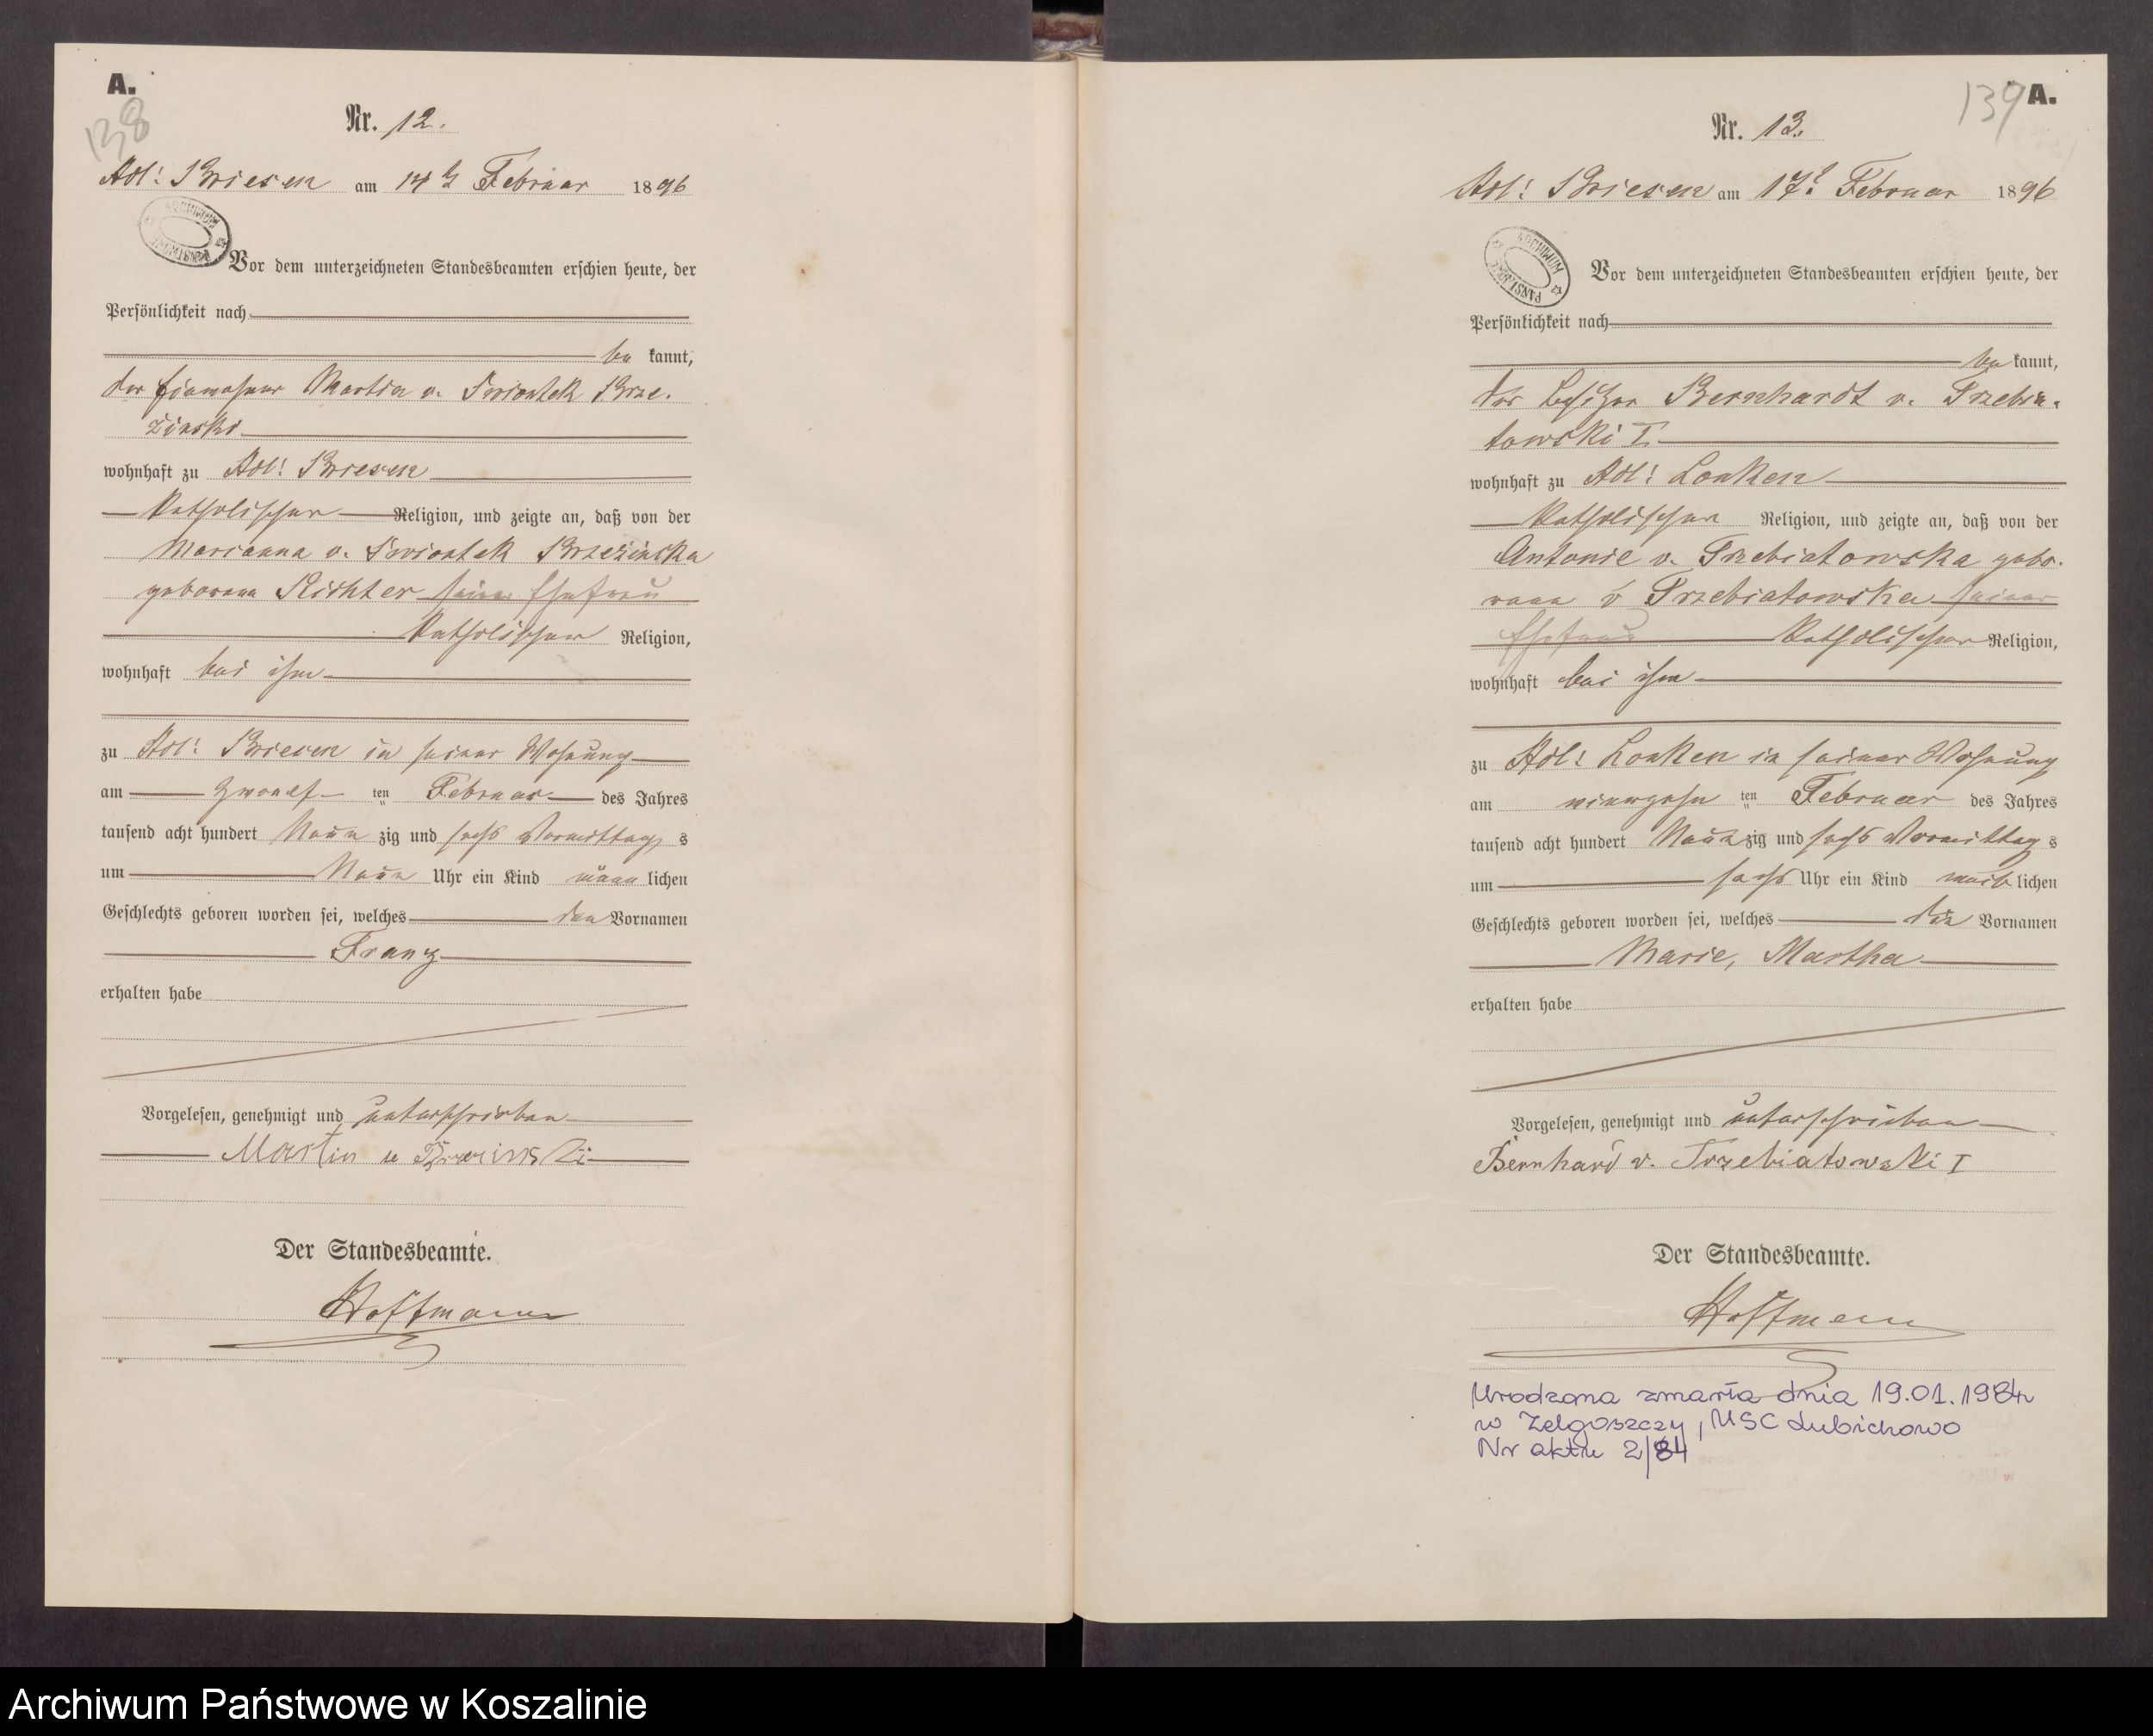 A.
138
Nr. 12.
Adl: Briesen am 14t Februar 1896
ARCHIWUM PAŃSTWOWE
Vor dem unterzeichneten Standesbeamten erschien heute, der
Persönlichkeit nach
be kannt,
der Eigenthümer Martin v. Swiontek Brze-
zinski
wohnhaft zu Adl: Briesen
katholischer Religion, und zeigte an, daß von der
Marianna v. Swiontek Brzezinska
geborenen Richter seiner Ehefrau
katholischer Religion,
wohnhaft bei ihm
zu Adl: Briesen in seiner Wohnung
am zwoelf ten Februar des Jahres
tausend acht hundert Neun zig und sechs Vormittag s
um Neun Uhr ein Kind männ lichen
Geschlechts geboren worden sei, welches den Vornamen
Franz
erhalten habe
Vorgelesen, genehmigt und unterschrieben
Martin v Brzezinski
Der Standesbeamte.
Hoffmann
139 A.
Nr. 13.
Adl: Briesen am 17t Februar 1896
ARCHIWUM PAŃSTWOWE
Vor dem unterzeichneten Standesbeamten erschien heute, der
Persönlichkeit nach
be kannt,
der Besitzer Bernhardt v. Trzebia-
towski I
wohnhaft zu Adl: Lonken
katholischen Religion, und zeigte an, daß von der
Antonie v. Trzebiatowska gebo-
renen v Trzebiatowska seiner
Ehefrau katholischer Religion,
wohnhaft bei ihm
zu Adl: Lonken in seiner Wohnung
am ten Februar des Jahres
tausend acht hundert Neun zig und sechs Vormittag s
um sechs Uhr ein Kind weib lichen
Geschlechts geboren worden sei, welches die Vornamen
Marie, Martha
erhalten habe
Vorgelesen, genehmigt und unterschrieben
Bernhard v. Trzebiatowski I
Der Standesbeamte.
Hoffmann
Urodzona zmarła dnia 19.01.1984r
w Zelgoszczy, USC Lubichowo
Nr aktu 2/84
Archiwum Państwowe w Koszalinie